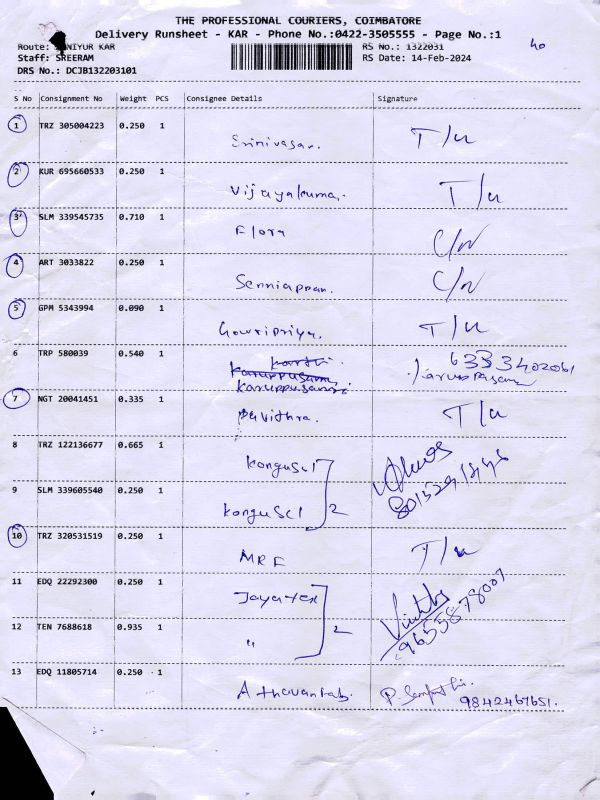 THE PROFESSIONAL COURIERS, COIMBATORE
Delivery Runsheet - KAR - Phone No.:0422-3505555 - Page No.:1
Route: NIYUR KAR
RS No.: 1322031
Staff: SREERAM
RS Date: 14-Feb-2024
DRS No.: DCJB132203101
S No Consignment No Weight PCS Consignee Details Signature
1 TRZ 305004223 0.250 1
Srinivasan. T/u
2 KUR 695660533 0.250 1
Vijayakumar. T/u
3 SLM 339545735 0.710 1
Flora C/N
4 ART 3033822 0.250 1
Senniappan. C/N
5 GPM 5343994 0.090 1
Gowripriya. T/u
6 TRP 580039 0.540 1
karthi. 6333402061
karuppusamy
karuppusamy. karuppusamy
7 NGT 20041451 0.335 1
Pavithra. T/u
8 TRZ 122136677 0.665 1
kongu Scl
9 SLM 339605540 0.250 1
kongu Scl 2
10 TRZ 320531519 0.250 1
MRF T/u
11 EDQ 22292300 0.250 1
Jaya tex
12 TEN 7688618 0.935 1
" 2 9655878007
13 EDQ 11805714 0.250 1
Athavan lab. 9842467651.